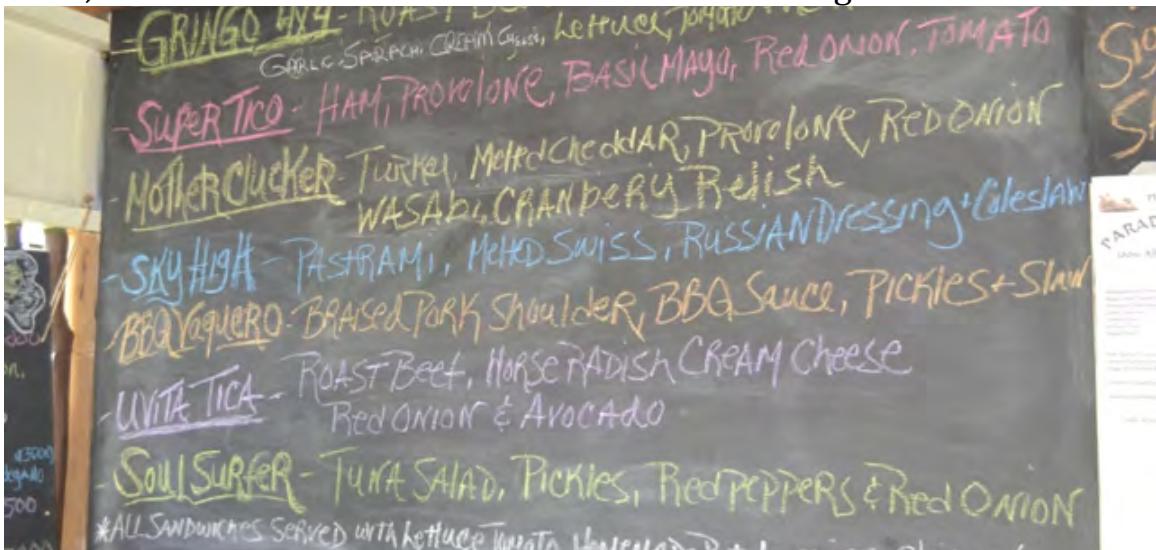 -GRINGO 4X4 - ROAST
GARLIC, SPINACH, CREAM Cheese, Lettuce, TOMATO
-SUPER TICO - HAM, PROVOLONE, BASIL MAYO, Red ONION, TOMATO
-MOTHERCLUCKER - TURKEY, Melted CheddAR, PROVOLONE, RED ONION
WASABI, CRANBERY Relish
-SKY HIGH - PASTRAMI, MelTED SWISS, RUSSIAN Dressing + ColeslAW
-BBQ VaqueRO - BRAISED PORK Shoulder, BBQ Sauce, PICKles + Slaw
-UVITA TICA - ROAST Beef, HORSE RADISH CREAM Cheese
Red ONION & AVOCADO
-Soul SURFER - TUNA SALAD, Pickles, Red PEPPERS & Red ONION
*ALL SANDWICHES SERVED with Lettuce Tomato
PARAD
500.